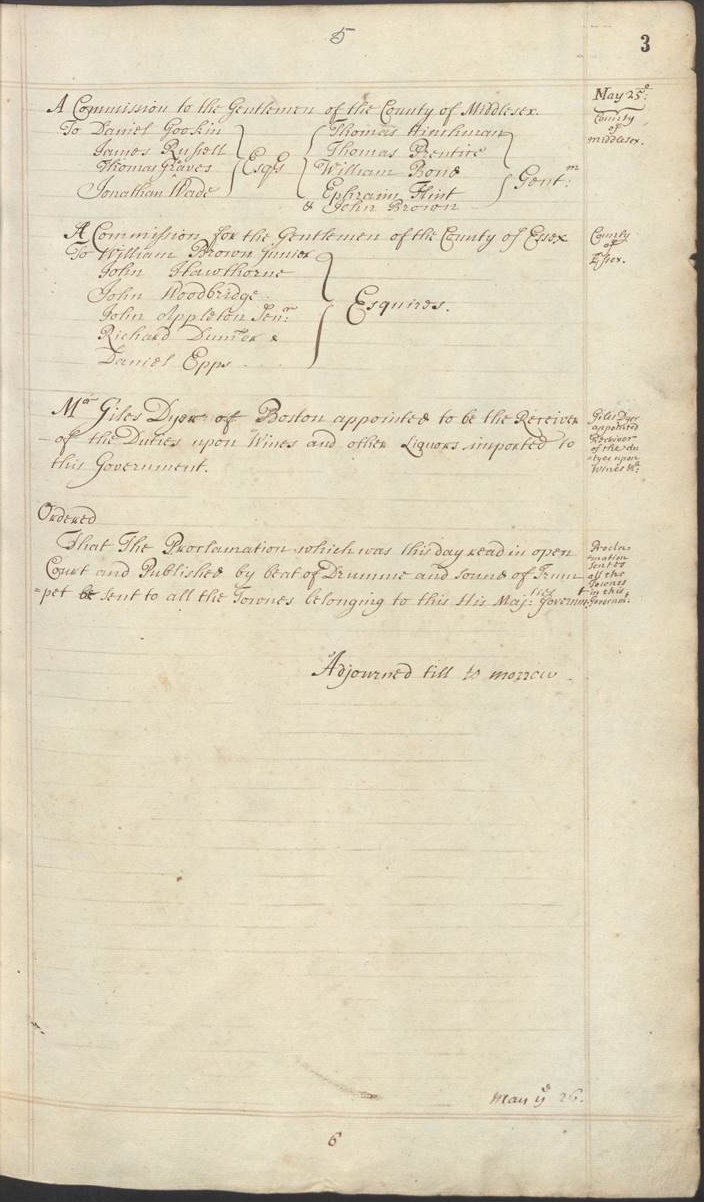 5
3
May 25º:
A Commission to the Gentlemen of the County of Middlesex.
County
of
Middlesex.
To Daniel Gookin
James Russell
Thomas Graves
Jonathan Wade
Esqrs
Thomas Hinchman
Thomas Prentice
William Bond
Ephraim Flint
& John Brown
Gentm:
A Commission for the Gentlemen of the County of Essex
County
of
Essex.
To William Brown Junior
John Hawthorne
John Woodbridge
John Appleton Senr
Richard Dumer &
Daniel Epps
Esquires.
Mr Giles Dyer of Boston appointed to be the Receiver
of the Duties upon Wines and other Liquors imported to
this Government.
Giles Dyer
appointed
Receiver
of the du
=tyes upon
Wines &c:
Ordered
That The Proclamation which was this day read in open
Court and Published by beat of Drumme and sound of Trum
=pet be sent to all the Townes belonging to this His Majties: Governmt
Procla=
mation
sent to
all the
Townes
in this
Governmt.
Adjourned till to morrow.
May ye 26.
6